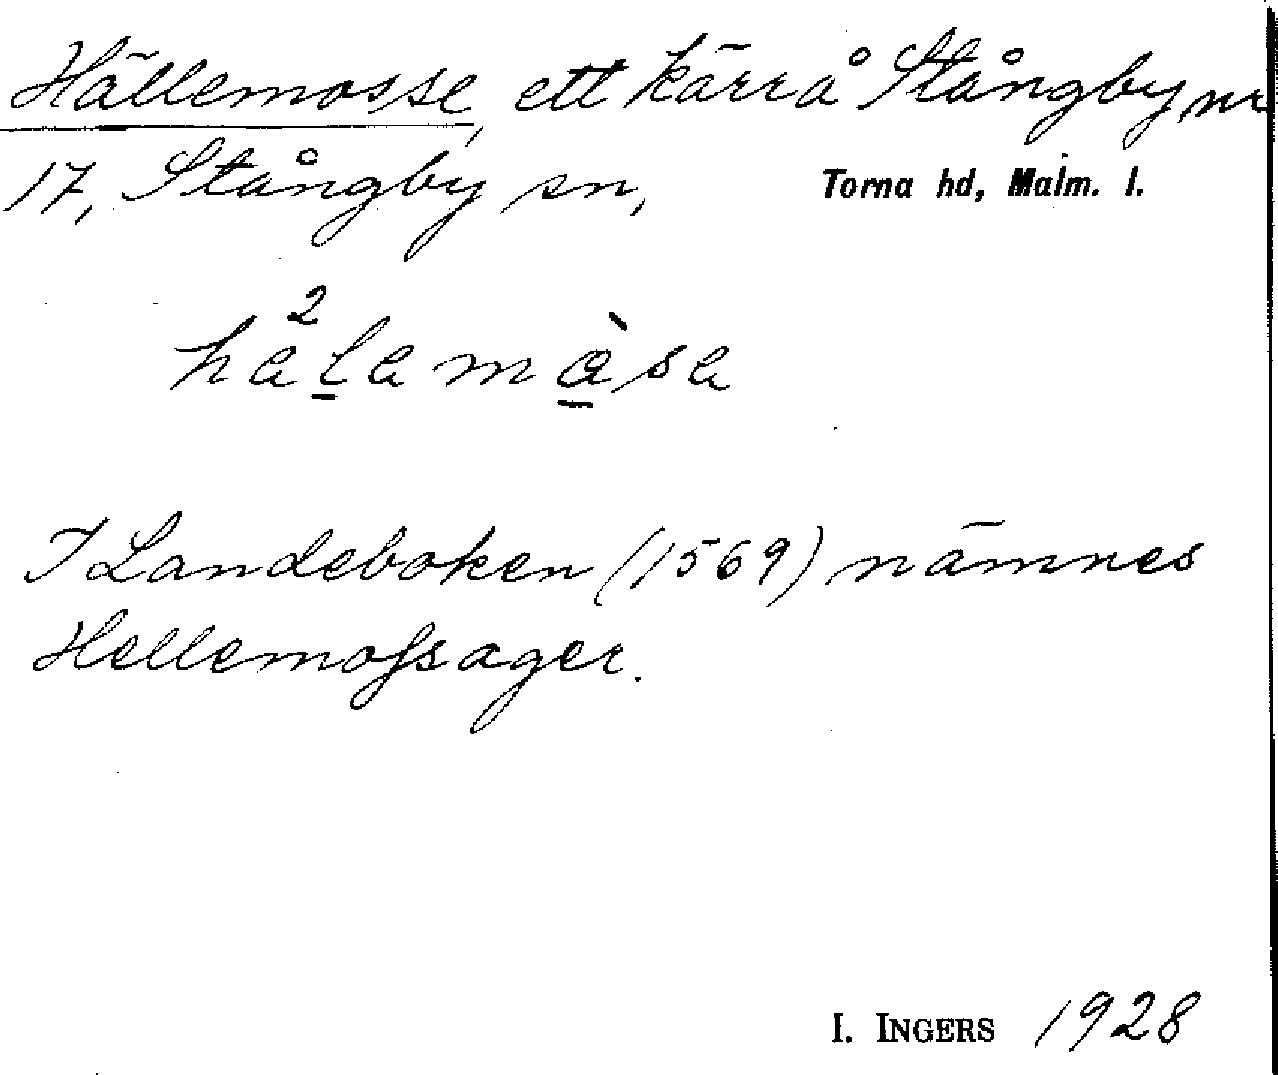 Hällemosse, ett kärr å Stångby nr
17, Stångby sn, Torna hd, Malm. l.
I Landeboken (1569) nämnes
Hellemofsager.
I. INGERS 1928